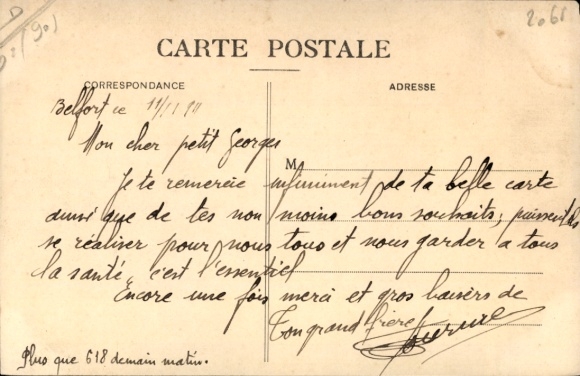 2061
CARTE POSTALE
CORRESPONDANCE
ADRESSE
Belfort ce 11/1/11
Mon cher petit Georges
M
Je te remercie infiniment de ta belle carte
aussi que de tes non moins bons souhaits; puissent ils
se réaliser pour nous tous et nous garder a tous
la santé, c'est l'essentiel
Encore une fois merci et gros baisers de
Ton grand frère
Plus que 618 demain matin.